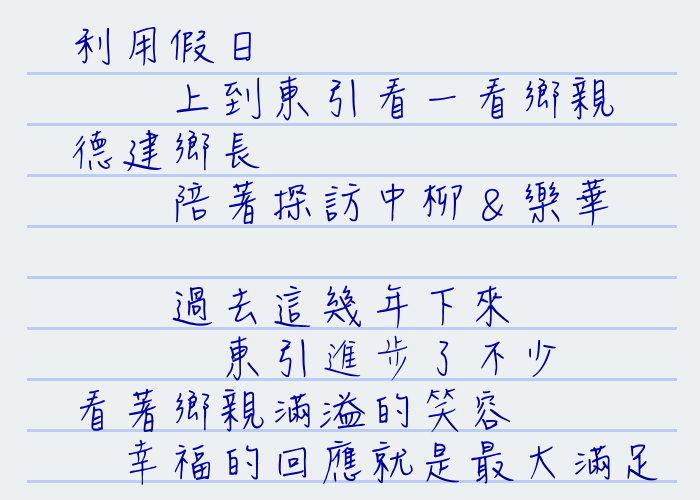 利用假日
上到東引看一看鄉親
德建鄉長
陪著探訪中柳&樂華
過去這幾年下來
東引進步了不少
看著鄉親滿溢的笑容
幸福的回應就是最大滿足